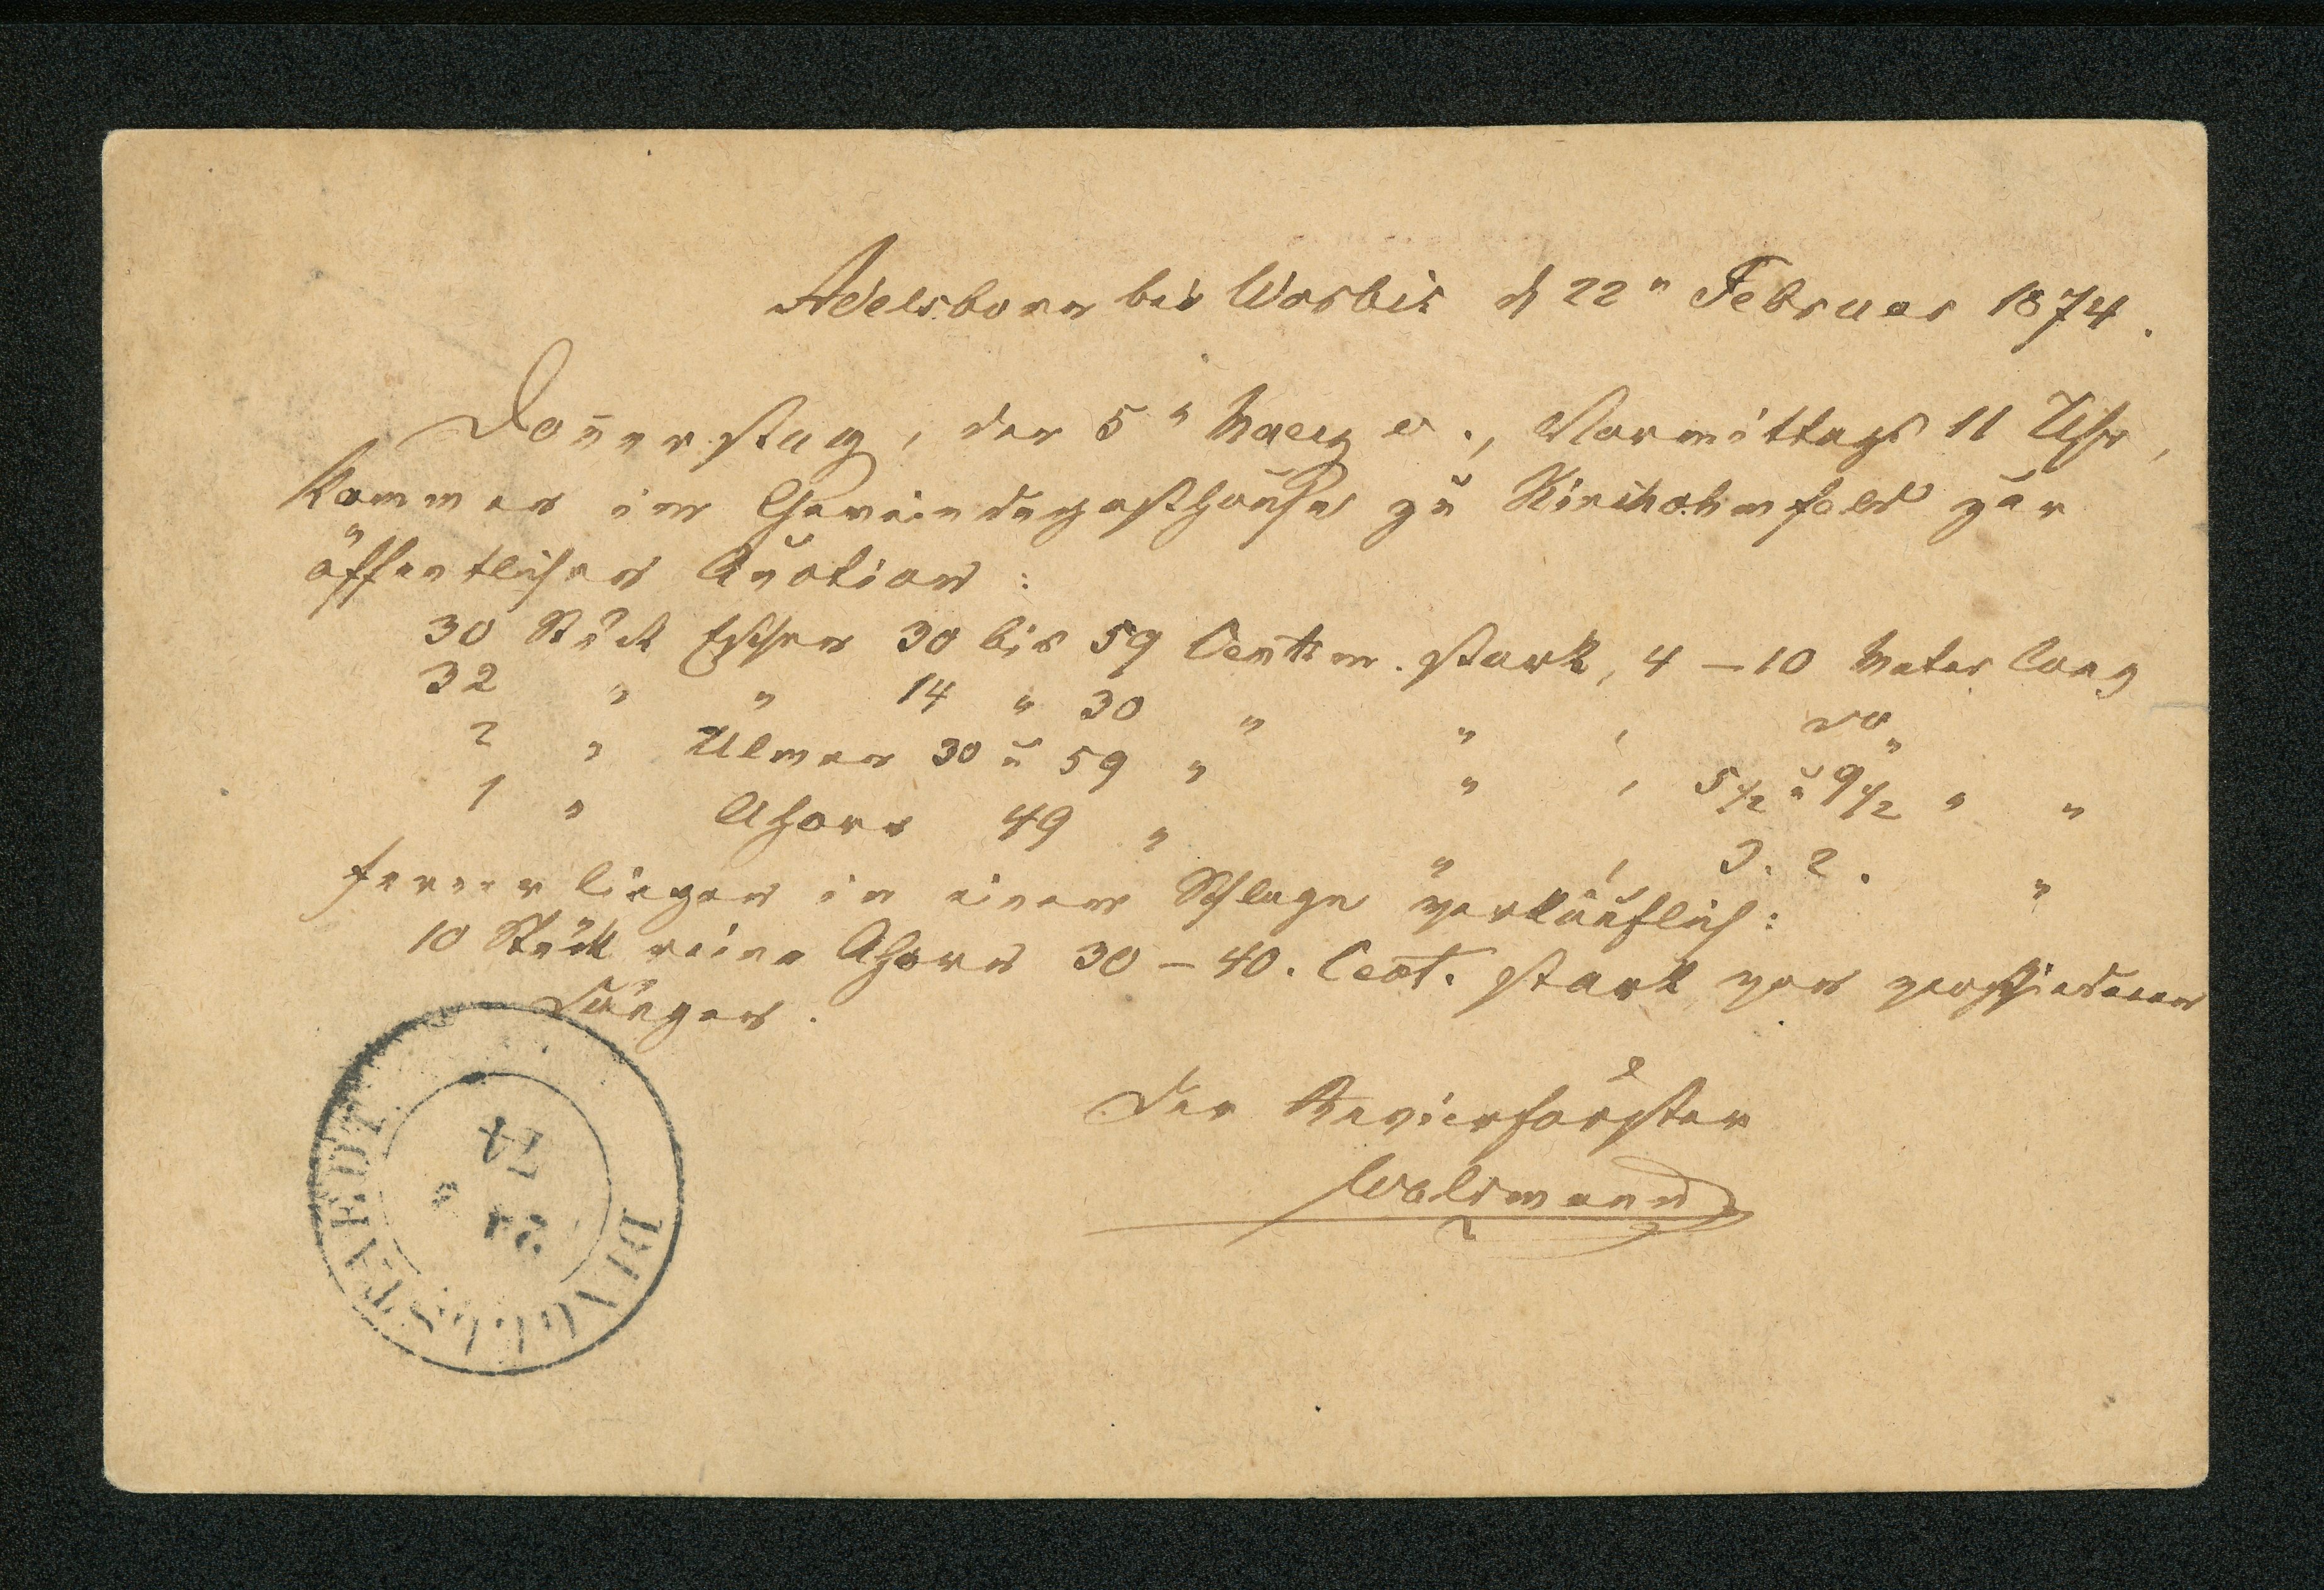 Adelsborn bei Worbis d 22" Februar 1874.
Donnerstag, den 5" Maerz c., Vormittags 11 Uhr,
kommen im Gemeindegasthause zu Kirchohmfeld zur
öffentlichen Auction:
30 Stück Eschen 30 bis 59 Centim. stark, 4 – 10 Meter lang
32 " " 14 " 30 " " , do "
2 " Ulmen 30 u 59 " " , 5 1/2 u 9 1/2 " "
1 " Ahorn 49 " " , 3. 2. "
ferner liegen in einem Schlage verkäuflich:
10 Stück reine Ahorn 30 – 40. Cent. stark von verschiedenen
Längen.
Der Revierförster
Waldmann
BINGELSTAEDT
24 2
74